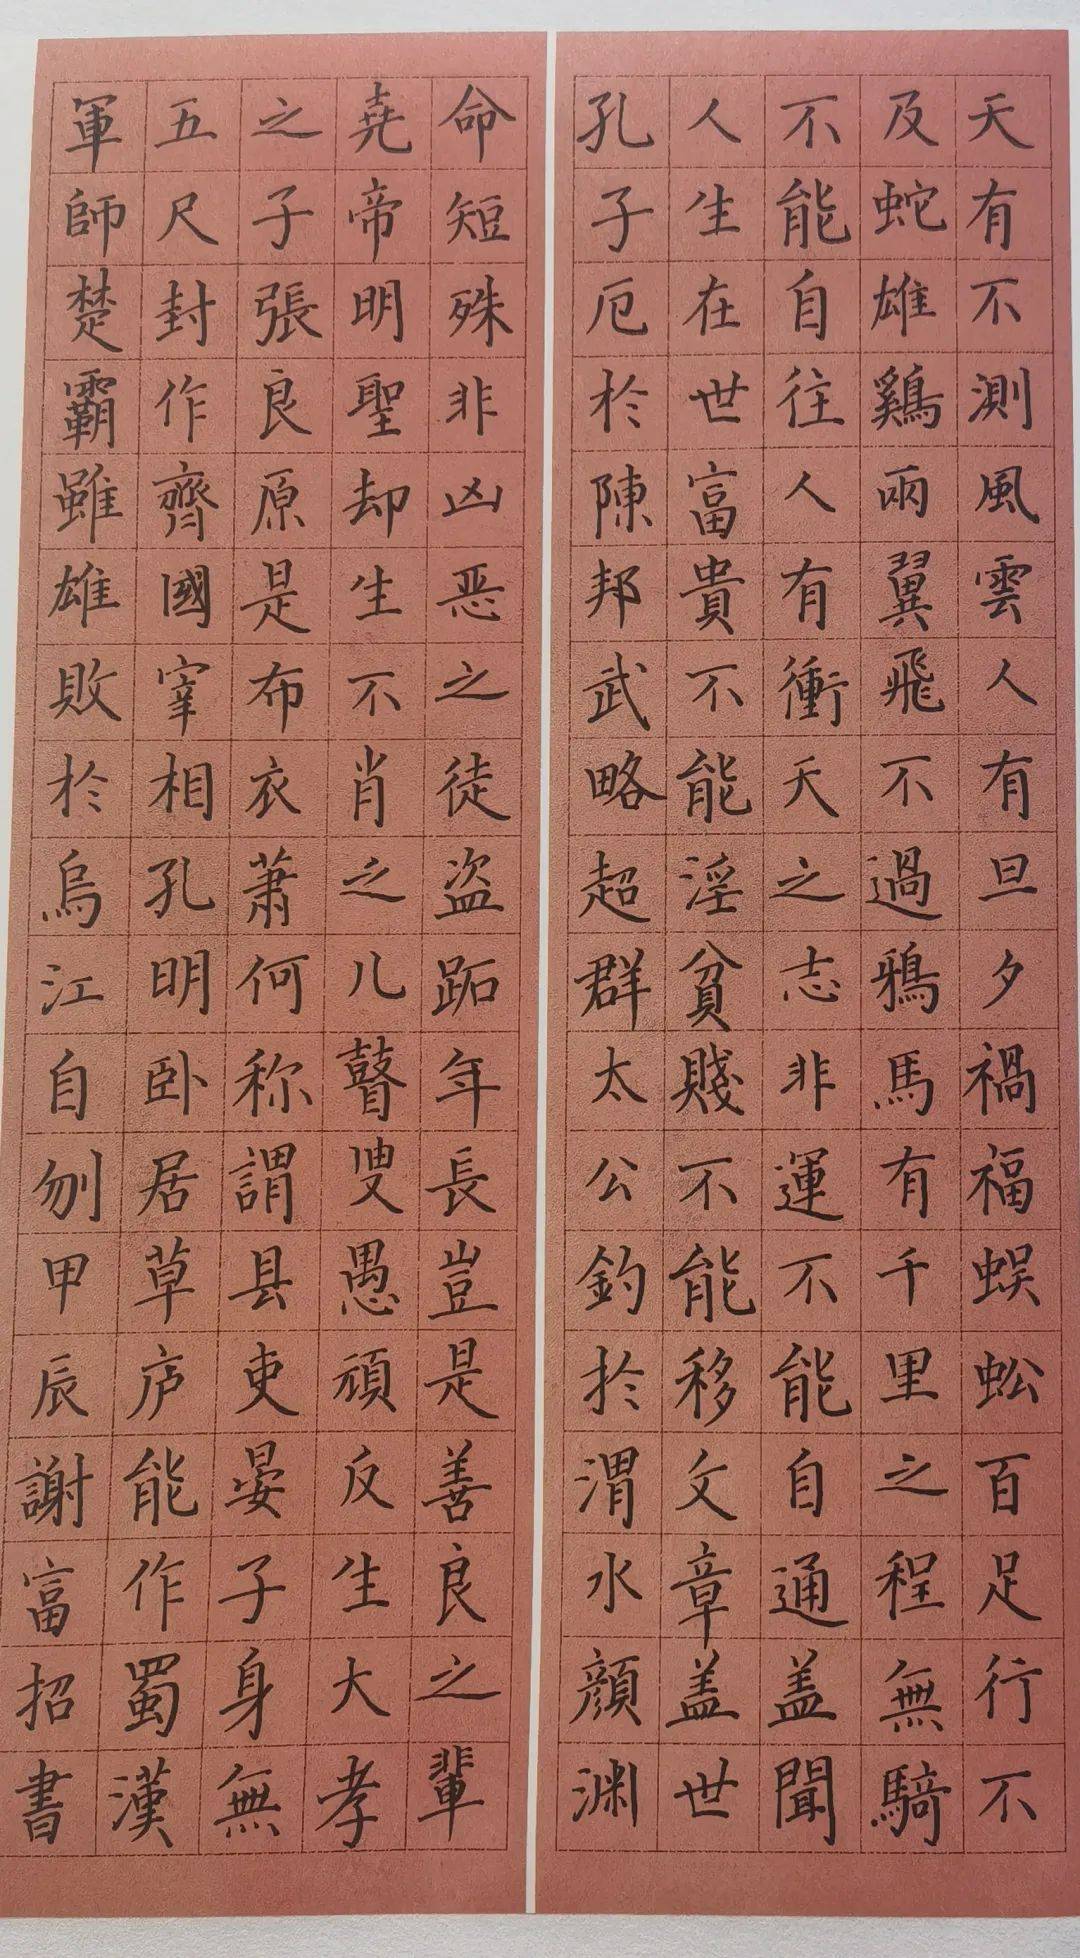 天有不測風雲人有旦夕禍福蜈蚣百足行不
及蛇雄鷄兩翼飛不過鴉馬有千里之程無騎
不能自往人有衝天之志非運不能自通盖聞
人生在世富貴不能淫貧賤不能移文章盖世
孔子厄於陳邦武略超群太公釣於渭水顔渊
命短殊非凶恶之徒盗跖年長豈是善良之輩
尭帝明聖却生不肖之儿瞽叟愚頑反生大孝
之子張良原是布衣萧何称謂县吏晏子身無
五尺封作齊國宰相孔明卧居草庐能作蜀漢
軍師楚霸雖雄敗於烏江自刎甲辰謝富招書